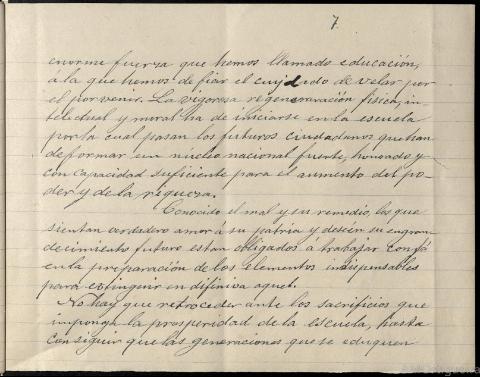 7
enorme fuerza que hemos llamado educación,
a la que hemos de fiar el cuidado de velar por
el porvenir. La vigorosa regeneración física, in-
telectual y moral ha de iniciarse en la escuela
por la cual pasan los futuros ciudadanos que han
de formar un núcleo nacional fuerte, honrado y
con capacidad suficiente para el aumento del po-
der y de la riqueza.
Conocido el mal y su remedio, los que
sientan verdadero amor á su patria y deseen su engran
decimiento futuro estan obligados a trabajar con fé
en la preparación de los elementos indispensables
para extinguir en difiniva aquel.
No hay que retroceder ante los sacrificios que
imponga la prosperidad de la escuela, hasta
conseguir que las generaciones que se eduquen